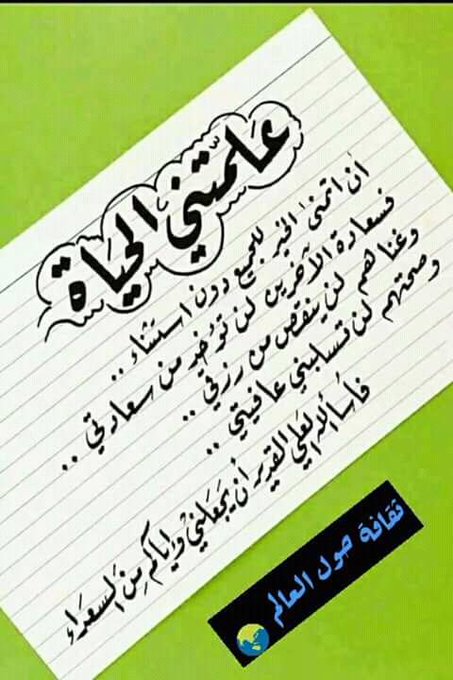 عَلمتني الحيَاة
ان اتمنىٰ الخير للجميع دون استثناء ..
فسعادة الآخرين لن تؤخذ من سعادتي ..
وغناهم لن ينقص من رزقي ..
وصحتهم لن تسلبني عافيتي ..
فأسأل الله العلي القدير أن يجعلني وإياكم من السعداء
ثقافة حول العالم